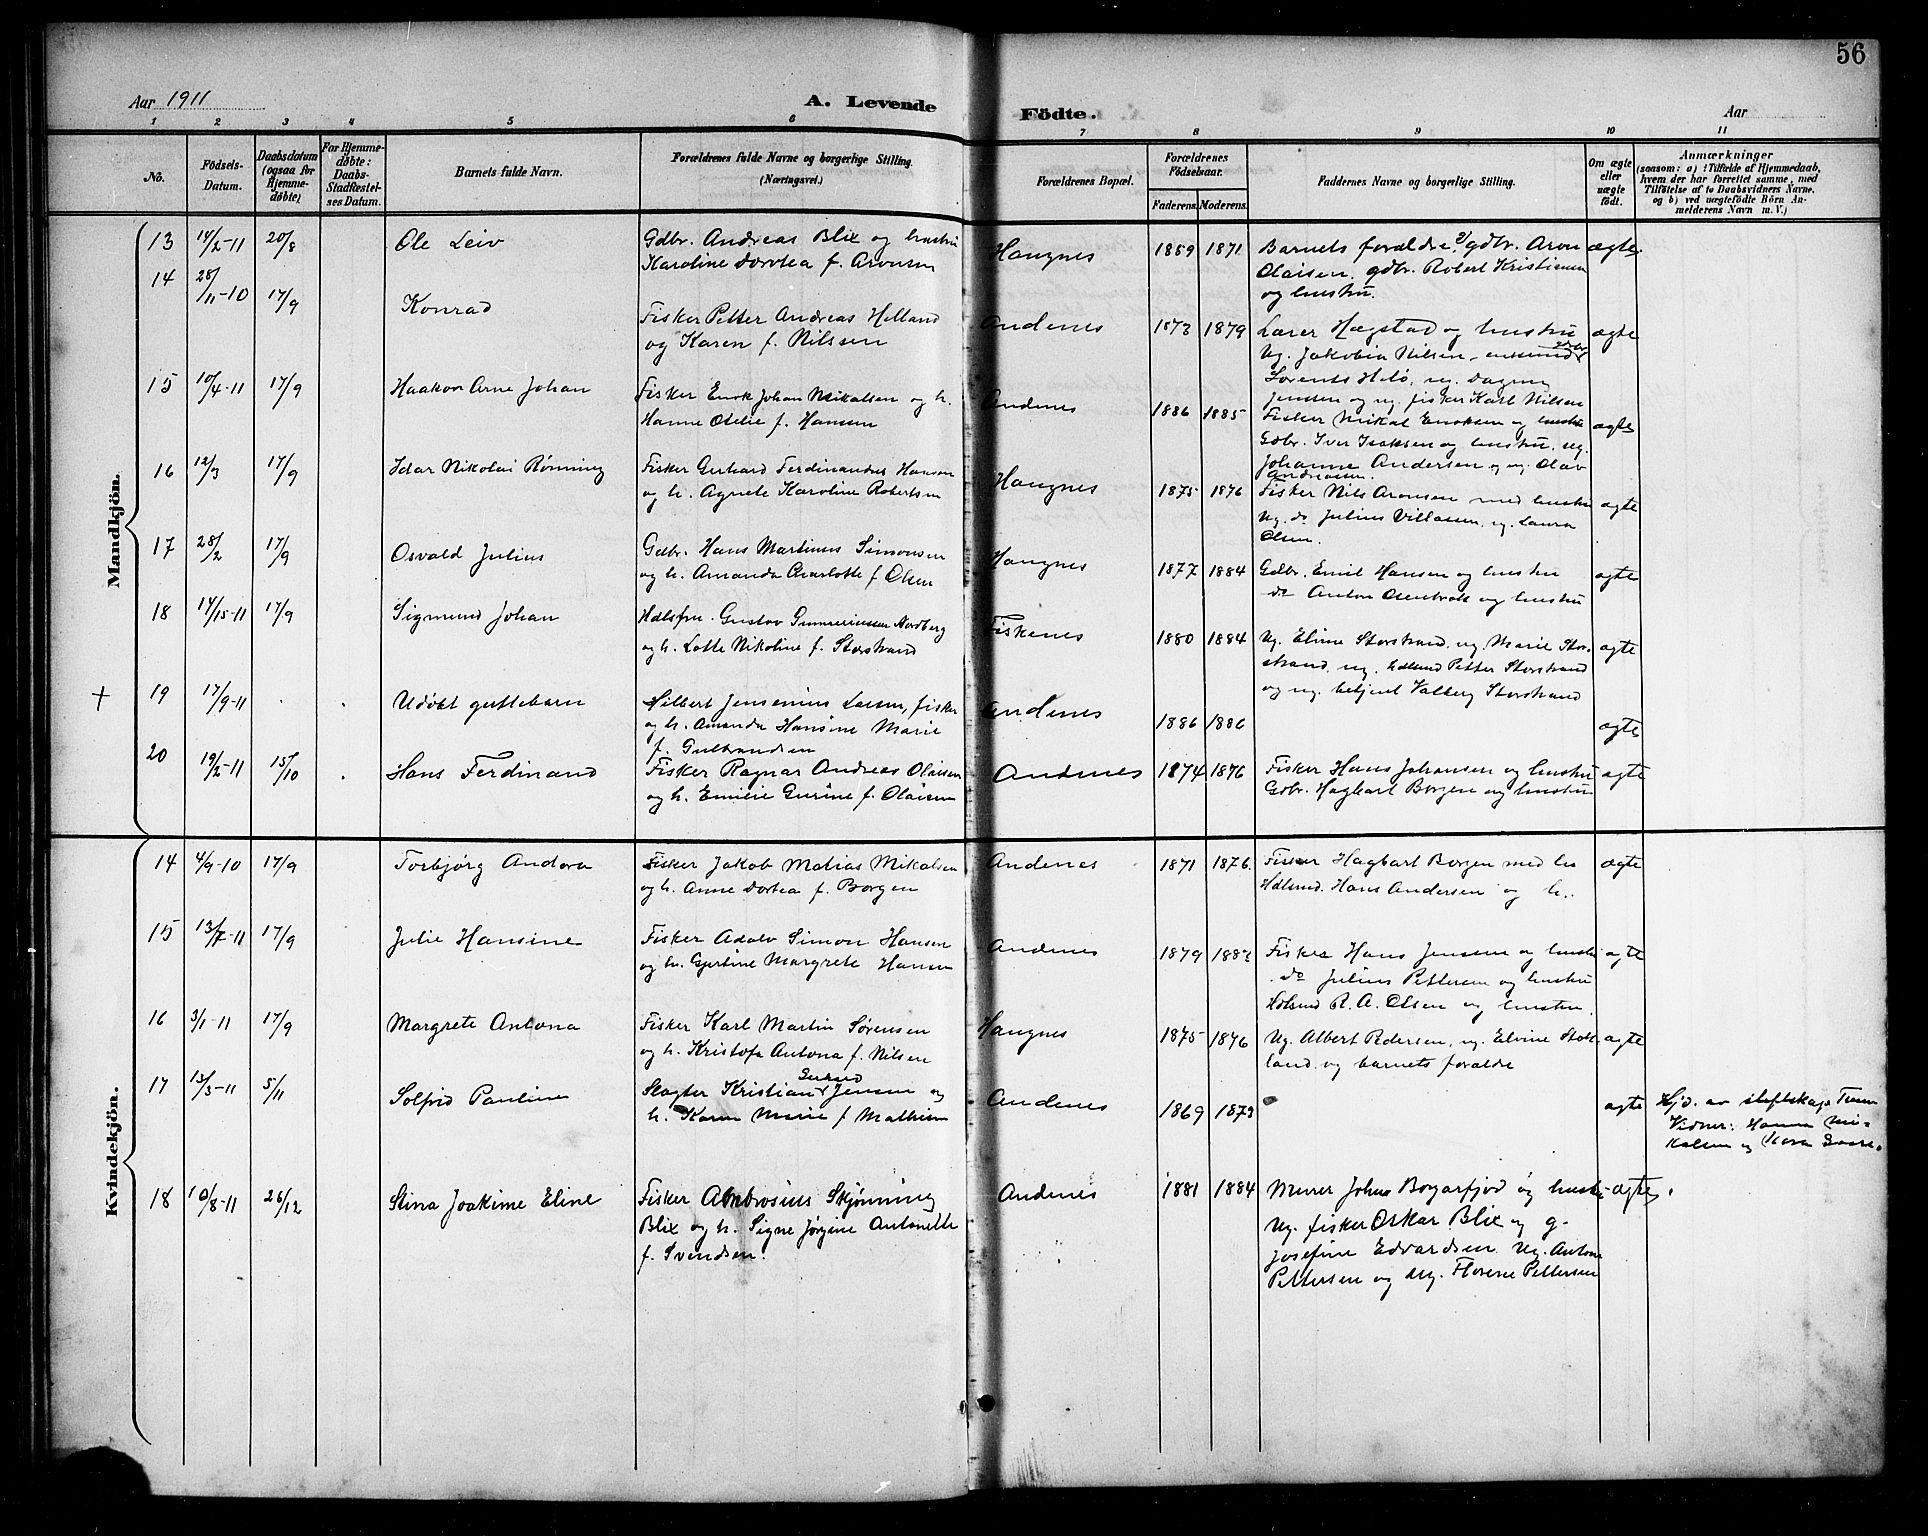 56
Aar 1911
A. Levende
Födte.
Aar
1 2 3 4 5 6 7 8 9 10 11
No.
Födsels-Datum.
Daabsdatum (ogsaa for Hjemmedøbte)
For Hjemmedøbte: Daabs-Stadfæstelses Datum.
Barnets fulde Navn.
Forældrenes fulde Navne og borgerlige Stilling. (Næringsvei.)
Forældrenes Bopæl.
Forældrenes Fødselsaar.
Faderens. Moderens.
Faddernes Navne og borgerlige Stilling.
Om ægte eller uægte født.
Anmærkninger
(saasom: a) i Tilfælde af Hjemmedaab,
hvem der har forrettet samme, med
Tilføielse af to Daabsvidners Navne.
og b) ved uægtefødte Börn Anmelderens Navn m. V.)
Mandkjön.
13 14/2-11 20/8 Ole Leiv
Gdbr. Andreas Blix og hustru
Karoline Dorotea f. Aronsen
Haugnes 1859 1871
Barnets forældre, gdbr. Aron
Olaisen. gdbr. Robert Kristiansen
og hustru.
ægte
14 28/11-10 17/9 Konrad
Fisker Petter Andreas Helland
og Karen f. Nilsen
Andenes 1873 1879
Lærer Hægstad og hustru
Ug. Jakobia Nilsen
Lorents Helø, ug. Dagny
Jenssen og ug. fisker Karl Nilsen
ægte
15 10/4-11 17/9 Haakon Arne Johan
Fisker Enok Johan Mikalsen og h.
Hanne Otelie f. Hansen
Andenes 1886 1885
Fisker Mikal Enoksen og hustru
Gdbr. Iver Isaksen og hustru. ug.
Johanne Andersen og ug. Olav
Andreasen.
ægte
16 12/3 17/9 Idar Nikolai Rønning
Fisker Gerhard Ferdinandus Hansen
og h. Agnete Karoline Robertsen
Haugnes 1875 1876
Fisker Nils Aronsen med hustru
Ug. do Julius Villassen, ug. Laura
Olsen.
ægte
17 28/2 17/9 Osvald Julius
Gdbr. Hans Martinus Simonsen
og h. Amanda Charlotte f. Olsen
Haugnes 1877 1884
Gdbr. Emil Hansen og hustru
do Anton og hustru
ægte
18 14/15-11 17/9 Sigmund Johan
Gustav Nordberg
og h. Lotte Nikoline f. Storstrand
Fiskenes 1880 1884
Ug. Eline Storstrand, ug. Marie Storstrand,
ug. Petter Storstrand
og ug. betjent Valberg Storstrand
ægte
+ 19 17/9-11 Udøbt guttebarn
Hilbert Jensenius Larsen, fisker
og h. Amanda Hansine Marie
f. Gulbrandsen
Andenes 1886 1886 ægte
20 19/2-11 15/10 Hans Ferdinand
Fisker Ragnar Andreas Olaisen
og h. Emilie Gurine f. Olaisen
Andenes 1874 1876
Fisker Hans Johansen og hustru
Gdbr. Hagbart Borgen og hustru
ægte
Kvindekjön.
14 4/9-10 17/9 Torbjørg Andora
Fisker Jakob Matias Mikalsen
og h. Anne Dortea f. Borgen
Andenes 1871 1876.
Fisker Hagbart Borgen med hu
Hdlsmd. Hans Andersen og h.
ægte
15 13/7-11 17/9 Julie Hansine
Fisker Adolv Simon Hansen
og h. Gjertine Margrete Hansen
Andenes 1879
Fisker Hans Jensen og hustru
do Julius Pettersen og hustru
Hdlsmd R. A. Olsen og hustru.
ægte
16 3/1-11 17/9 Margrete Antona
Fisker Karl Martin Sørensen
og h. Kristofa Antona f. Nilsen
Haugnes 1875 1876
Ug. Albert Pedersen, ug. Elvine
og barnets forældre
ægte
17 13/3-11 5/11 Solfrid Pauline
Slagter Kristian Gerhard Jensen og
h. Karen Marie f. Mathisen
Andenes 1869 1873
ægte
Hjd. av
Vidner: Hanna Mikalsen
og
18 10/8-11 26/12 Stina Joakime Eline
Fisker Ambrosius Skjønning
Blix og h. Signe Jørgine Antonette
f. Svendsen.
Andenes 1881 1884
Murer Johns Borgarfjord og hustru
Ug. fisker Oskar Blix og g.
Josefine Edvardsen. Ug. Anton
Pettersen og ug. Florene Pettersen
ægte